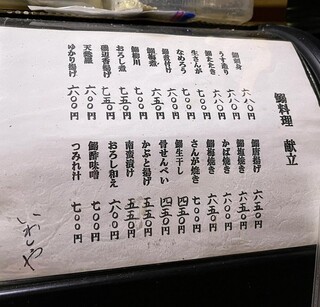 鰯料理 献立
鰯刺身 六八〇円
うす造り 六八〇円
鰯たたき 六八〇円
生さんが 六八〇円
なめろう 七〇〇円
鰯柳川 七五〇円
おろし煮 七五〇円
磯辺香揚げ 七五〇円
天麩羅 六八〇円
ゆかり揚げ 六〇〇円
鰯唐揚げ 六五〇円
鰯塩焼き 六〇〇円
かば焼き 六五〇円
鰯梅焼き 六五〇円
さんが焼き 七〇〇円
鰯生干し 四五〇円
骨せんべい 四五〇円
かぶと揚げ 五五〇円
南蛮漬け 五五〇円
おろし和え 六〇〇円
鰯酢味噌 七〇〇円
つみれ汁 七〇〇円
いわしや